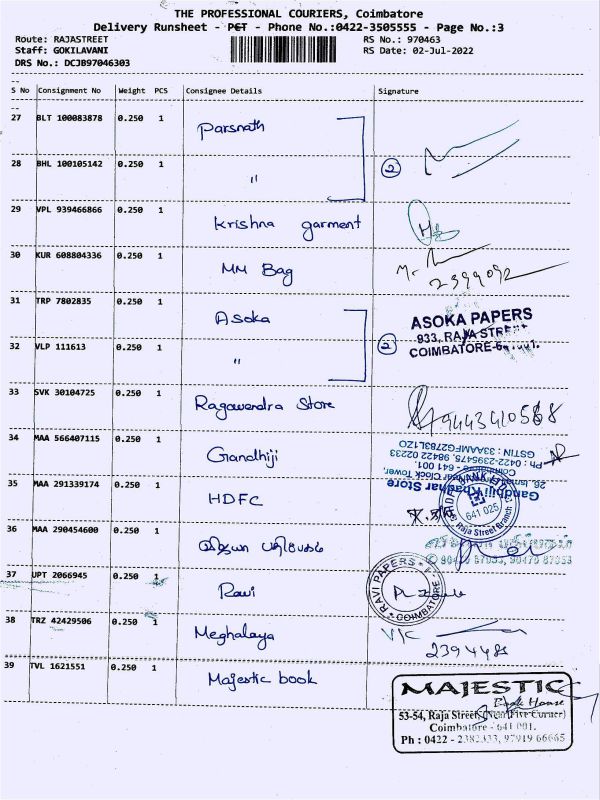 THE PROFESSIONAL COURIERS, Coimbatore
Delivery Runsheet - PCT - Phone No.:0422-3505555 - Page No.:3
Route: RAJASTREET
RS No.: 970463
Staff: GOKILAVANI
RS Date: 02-Jul-2022
DRS No.: DCJB97046303
S No Consignment No Weight PCS Consignee Details Signature
27 BLT 100083878 0.250 1 Parsnath
28 BHL 100105142 0.250 1 " 2
29 VPL 939466866 0.250 1 Krishna garment
30 KUR 608804336 0.250 1 MM Bag 2399092
31 TRP 7802835 0.250 1 Asoka
ASOKA PAPERS
933, RAJA STREET
COIMBATORE-641001.
32 VLP 111613 0.250 1 " 2
33 SVK 30104725 0.250 1 Ragavendra Store
34 MAA 566407115 0.250 1 Gandhiji
Gandhiji Khadhar Store
Clock Tower,
Coimbatore - 641 001.
Ph : 0422-2395475, 98422 02233
GSTIN : 33AAMFG2783L1ZO
35 MAA 291339174 0.250 1 HDFC
HDFC BANK LTD
641 025
Raja Street Branch
36 MAA 290454600 0.250 1
37 UPT 2066945 0.250 1 Ravi
RAVI PAPERS
COIMBATORE
38 TRZ 42429506 0.250 1 Meghalaya
2394481
39 TVL 1621551 0.250 1 Majestic book
MAJESTIC
Book House
53-54, Raja Street, (Near Five Corner)
Coimbatore - 641 001.
Ph : 0422 - 2382333, 97919 66665